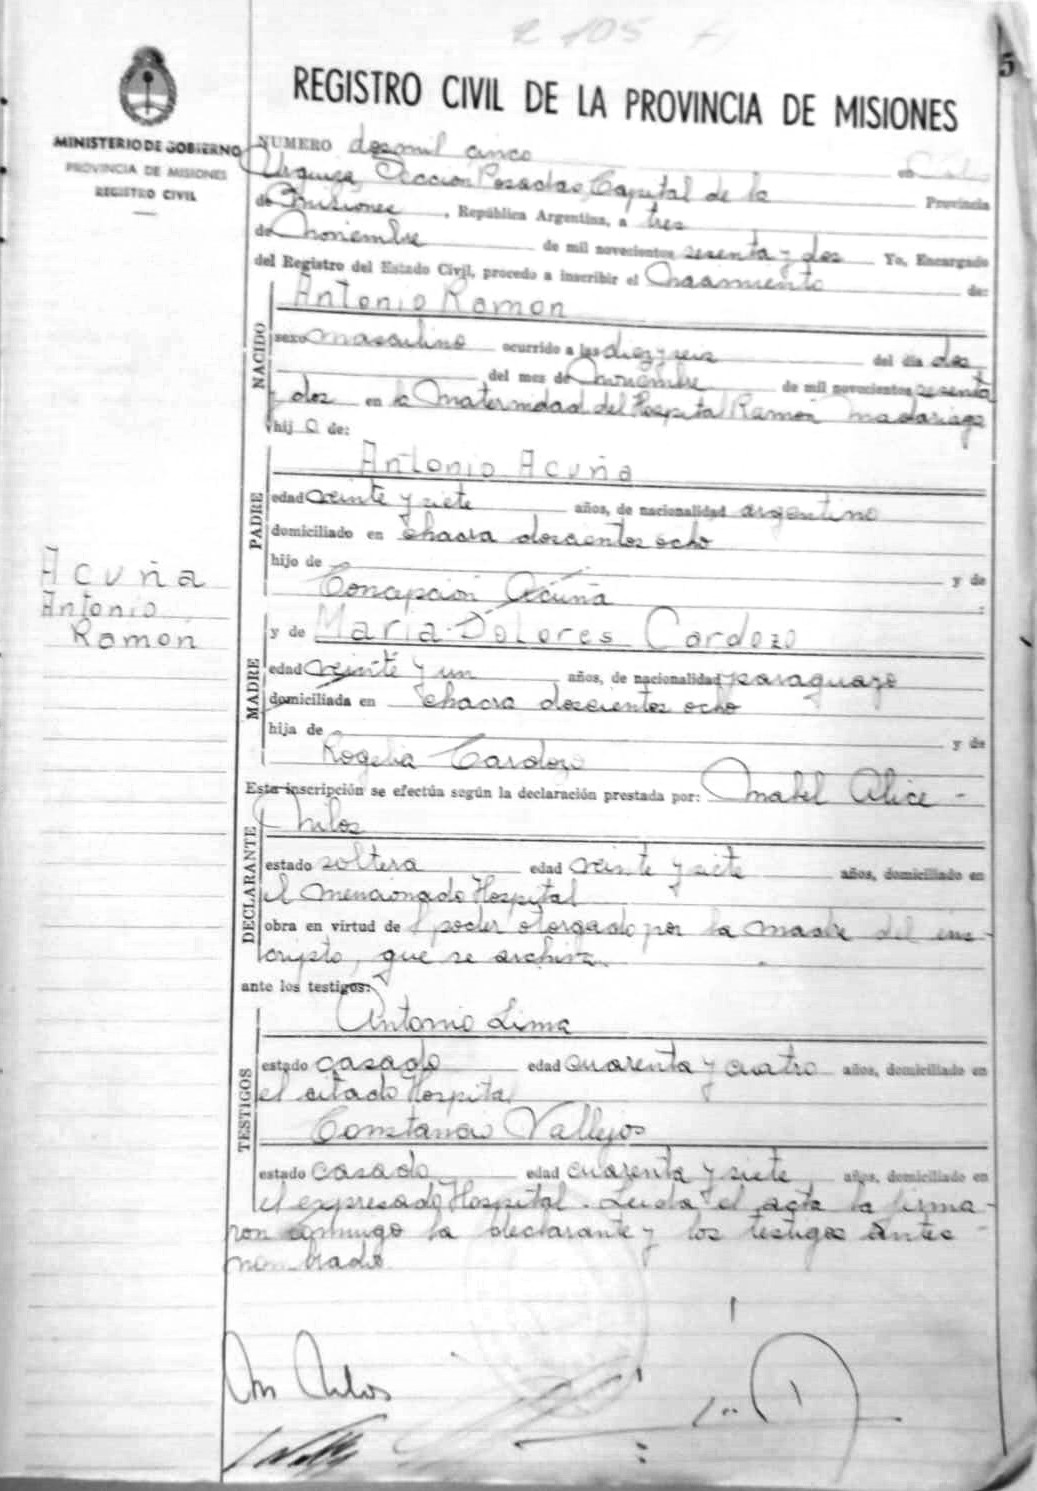 2 105
5
REGISTRO CIVIL DE LA PROVINCIA DE MISIONES
MINISTERIO DE GOBIERNO
PROVINCIA DE MISIONES
REGISTRO CIVIL
NUMERO dosmil cinco en
Urquiza, Sección Posadas, Capital de la Provincia
de Misiones, República Argentina, a tres
de noviembre de mil novecientos sesenta y dos Yo, Encargado
del Registro del Estado Civil, procedo a inscribir el Nacimiento de:
NACIDO
Antonio Ramon
sexo masculino ocurrido a las diez y seis del día dos
del mes de noviembre de mil novecientos sesenta
y dos en la Maternidad del Hospital Ramon Madariaga
hij o de:
PADRE
Antonio Acuña
edad veinte y siete años, de nacionalidad argentino
domiciliado en chacra doscientos ocho
hijo de y de
Concepcion Acuña
Acuña
Antonio
Ramon
MADRE
y de Maria Dolores Cardozo
edad veinte y un años, de nacionalidad paraguayo
domiciliada en chacra doscientos ocho
hija de y de
Rogelia Cardozo
Esta inscripción se efectúa según la declaración prestada por: Mabel Alice -
DECLARANTE
estado soltera edad veinte y siete años, domiciliado en
el mencionado Hospital
obra en virtud de poder otorgado por la madre del ins-
cripto, que se archiva.
ante los testigos:
TESTIGOS
Antonio Lima
estado casado edad cuarenta y cuatro años, domiciliado en
el citado Hospital
Constancio Vallejos
estado casado edad cuarenta y siete años, domiciliado en
el expresado Hospital. Leida el acta la firma-
ron conmigo la declarante y los testigos antes -
nombrados